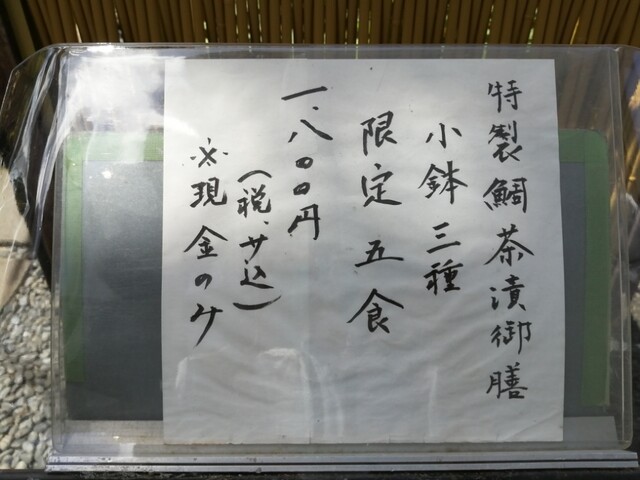 特製鯛茶漬御膳
小鉢三種
限定五食
一、八〇〇円
(税、サ込)
※現金のみ